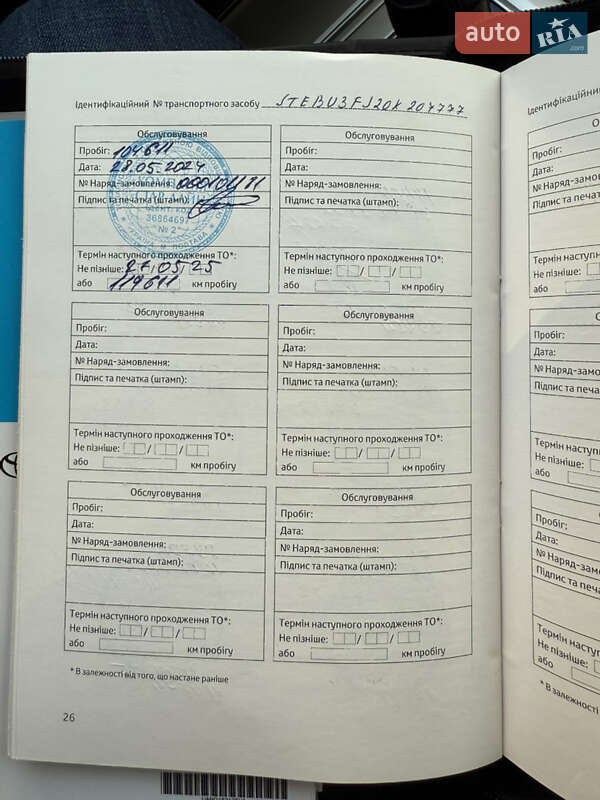 auto RIA .com
Ідентифікаційний № транспортного засобу JTEBU3FJ20K204777
Обслуговування
Пробіг: 104611
Дата: 28.05.2024
№ Наряд-замовлення:
Підпис та печатка (штамп):
3686469
№ 2
Термін наступного проходження ТО*:
Не пізніше: 27.05.25
або 119611 км пробігу
Обслуговування
Пробіг:
Дата:
№ Наряд-замовлення:
Підпис та печатка (штамп):
Термін наступного проходження ТО*:
Не пізніше: / /
або км пробігу
Обслуговування
Пробіг:
Дата:
№ Наряд-замовлення:
Підпис та печатка (штамп):
Термін наступного проходження ТО*:
Не пізніше: / /
або км пробігу
Обслуговування
Пробіг:
Дата:
№ Наряд-замовлення:
Підпис та печатка (штамп):
Термін наступного проходження ТО*:
Не пізніше: / /
або км пробігу
Обслуговування
Пробіг:
Дата:
№ Наряд-замовлення:
Підпис та печатка (штамп):
Термін наступного проходження ТО*:
Не пізніше: / /
або км пробігу
Обслуговування
Пробіг:
Дата:
№ Наряд-замовлення:
Підпис та печатка (штамп):
Термін наступного проходження ТО*:
Не пізніше: / /
або км пробігу
* В залежності від того, що настане раніше
26
Ідентифікаційний
Пробіг:
Дата:
№ Наряд-замовл
Підпис та печат
Термін наступно
Не пізніше:
або
Пробіг:
Дата:
№ Наряд-замо
Підпис та печа
Термін наступ
Не пізніше:
або
Пробіг:
Дата:
№ Наряд-за
Підпис та п
Термін наст
Не пізніше:
або
* В залежності